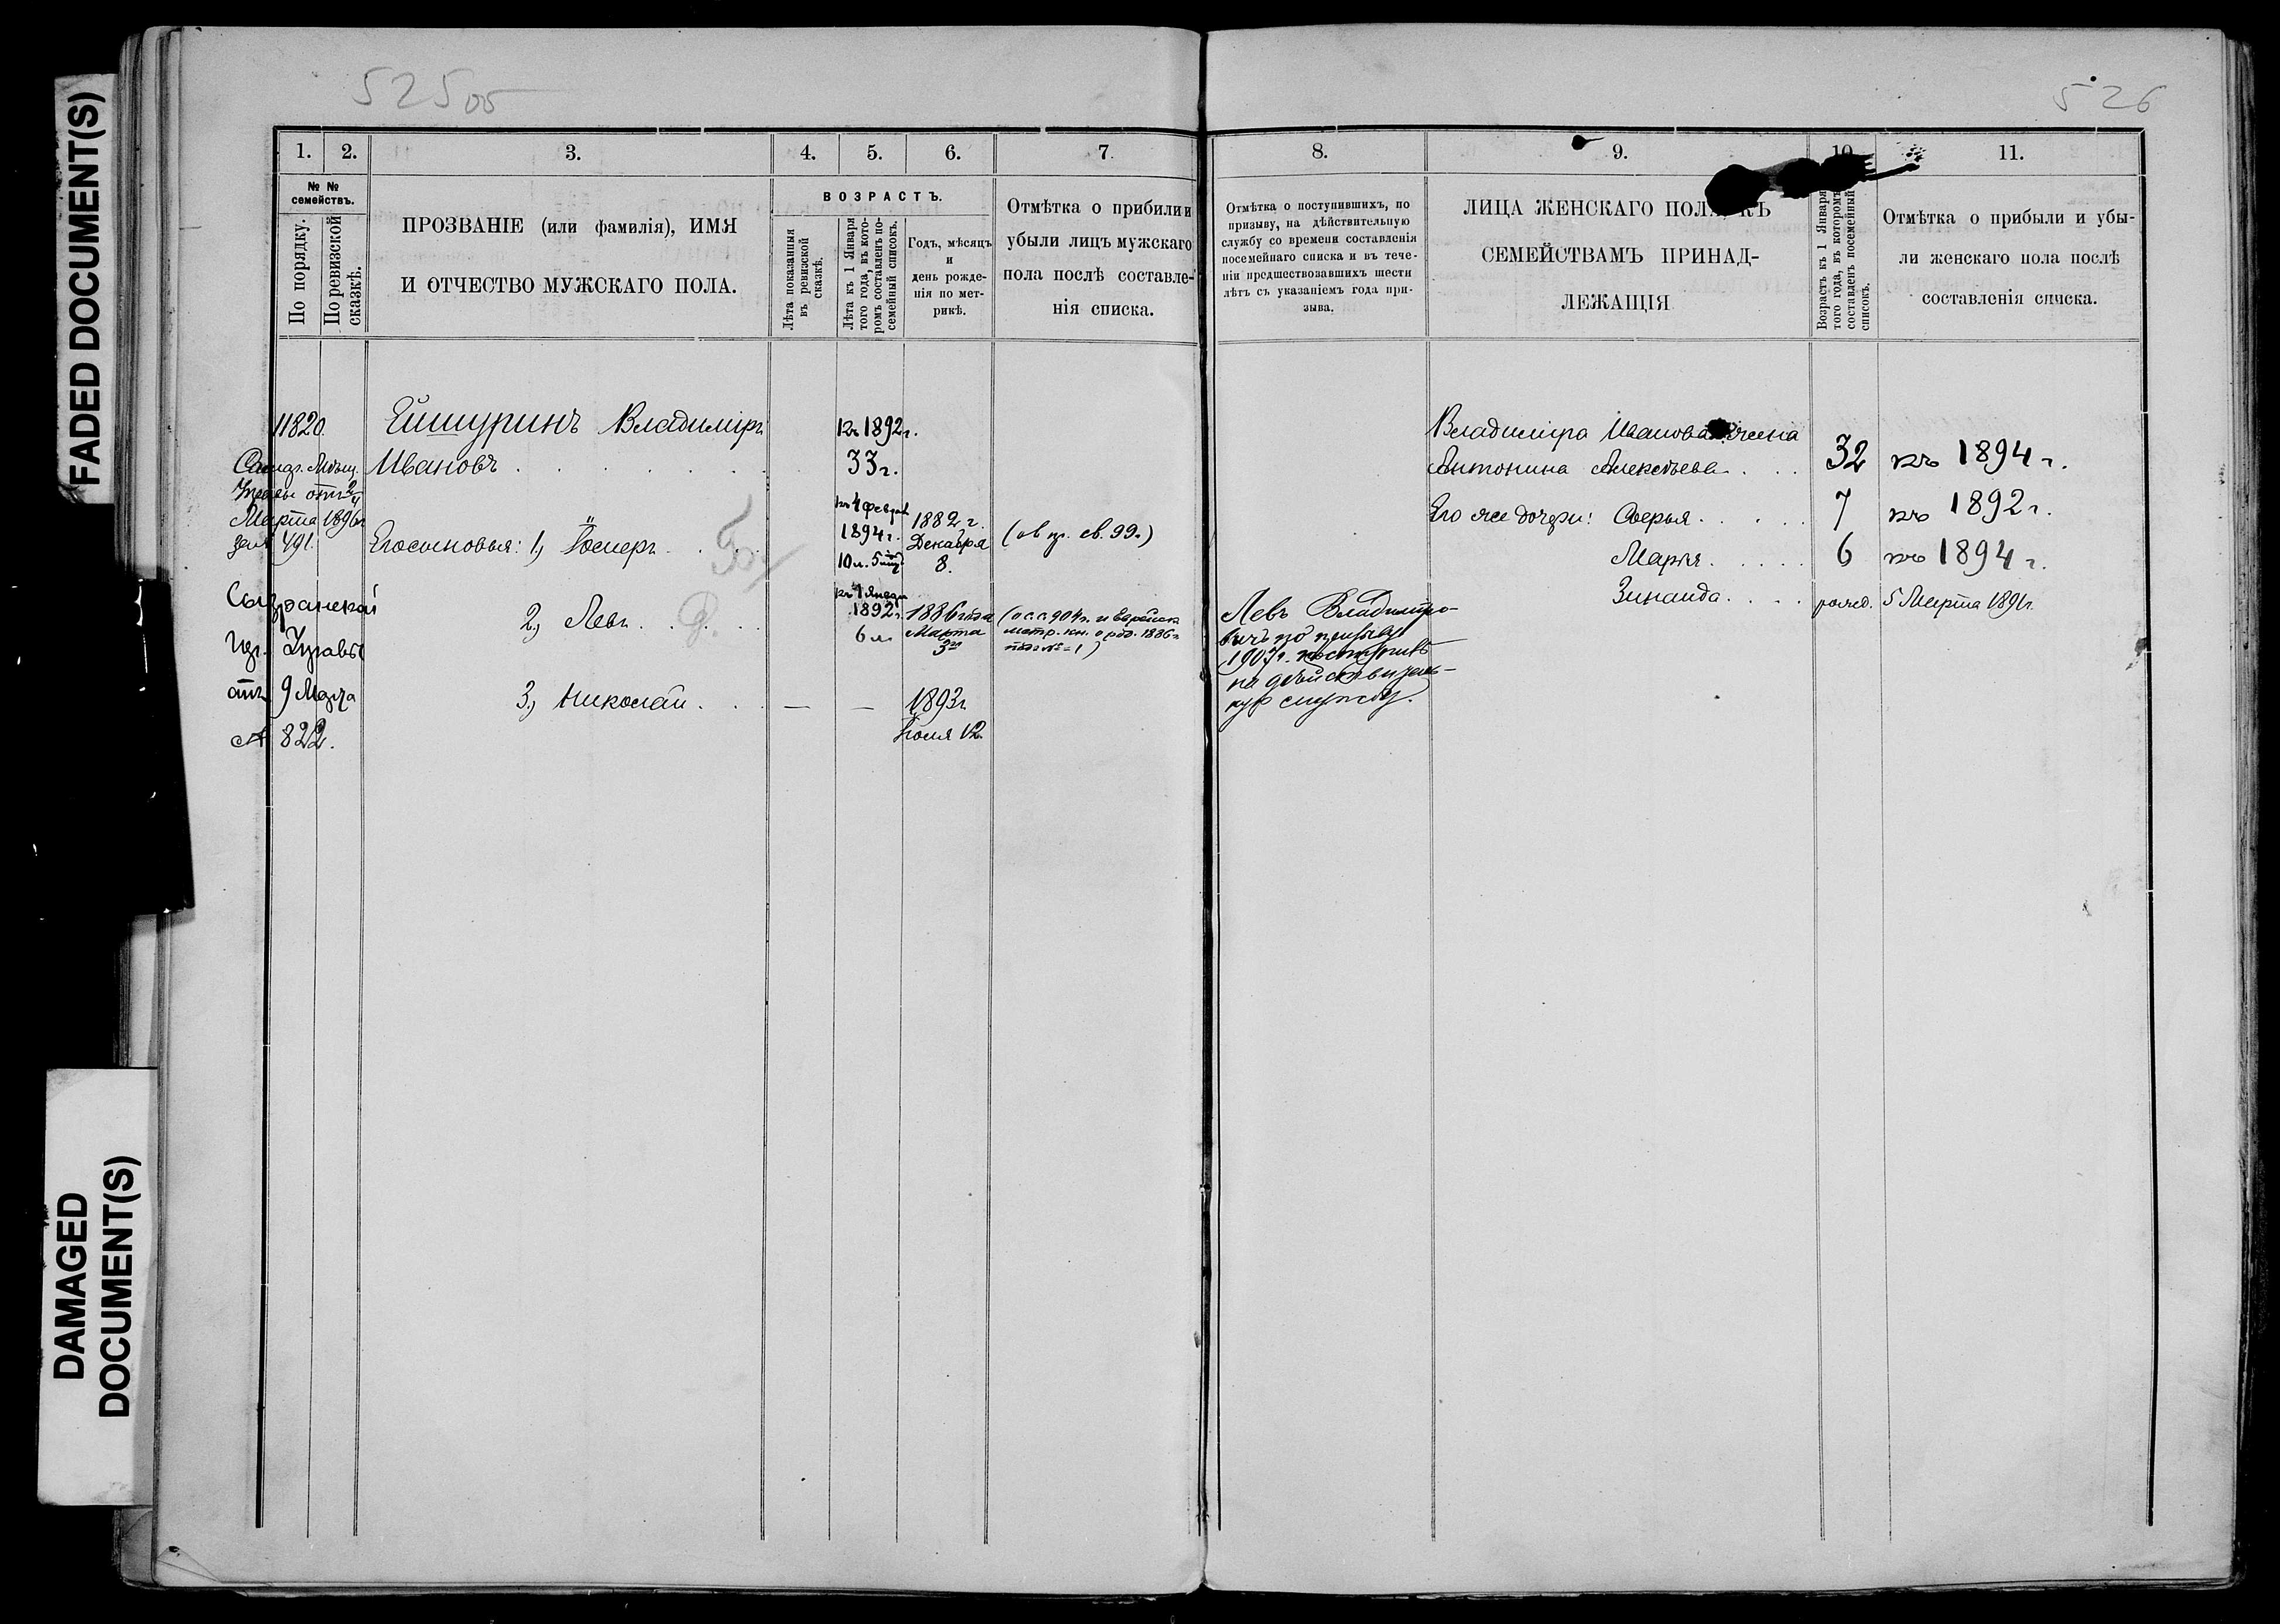 FADED DOCUMENT(S)
DAMAGED
DOCUMENT(S)
525 об
526
1.
2.
3.
4.
5.
6.
7.
№ №
семействъ.
По порядку.
По ревизской
сказкѣ.
ПРОЗВАНІЕ (или фамилія), ИМЯ
И ОТЧЕСТВО МУЖСКАГО ПОЛА.
ВОЗРАСТЪ.
Лѣта показанныя
въ ревизской
сказкѣ.
Лѣта къ 1 Января
того года, въ кото-
ромъ составленъ по-
семейный списокъ.
Годъ, мѣсяцъ
и
день рожде-
нія по мет-
рикѣ.
Отмѣтка о прибылии
убыли лицъ мужскаго
пола послѣ составле-
нія списка.
11820.
Мѣщ.
Управы отъ
Марта 1896г
491.
Сызранской
Гор. Управы
отъ 9 Марта
№ 822.
Ейшуринъ Владиміръ
Ивановъ . . . . . .
Къ 1892г.
33г.
Его сыновья: 1, Іосиеръ . . .
къ 4 Феврал
1894г.
10 л. 5
1882 г.
Декабря
8.
(об пр. св. 99.)
2, Левъ . . . .
къ 1 Январ
1892г.
6 л.
1886 года
Марта
3го
(о с. г. 904 г. и еврейск
метр. кн. о род. 1886 г
подъ № 1)
3, Николай . . . — —
1893г.
Іюля 12.
8.
9.
10.
11.
Отмѣтка о поступившихъ, по
призыву, на дѣйствительную
службу со времени составленія
посемейнаго списка и въ тече-
ніи предшествовавшихъ шести
лѣтъ съ указаніемъ года при-
зыва.
ЛИЦА ЖЕНСКАГО ПОЛА, КЪ
СЕМЕЙСТВАМЪ ПРИНАД-
ЛЕЖАЩІЯ
Возрастъ къ 1 Января
того года, въ которомъ
составленъ посемейный
списокъ.
Отмѣтка о прибыли и убы-
ли женскаго пола послѣ
составленія списка.
Владиміра Иванова жена
Антонина Алексѣева . . . 32 къ 1894 г.
Его же дочери: Сверья . . . . . 7 къ 1892 г.
Марья . . . . . 6 къ 1894 г.
Зинаида . . . . рожд. 5 Марта 1891г.
Левъ Владиміро-
вичъ по призыву
1907 г. поступилъ
на дѣйствитель-
ную службу.